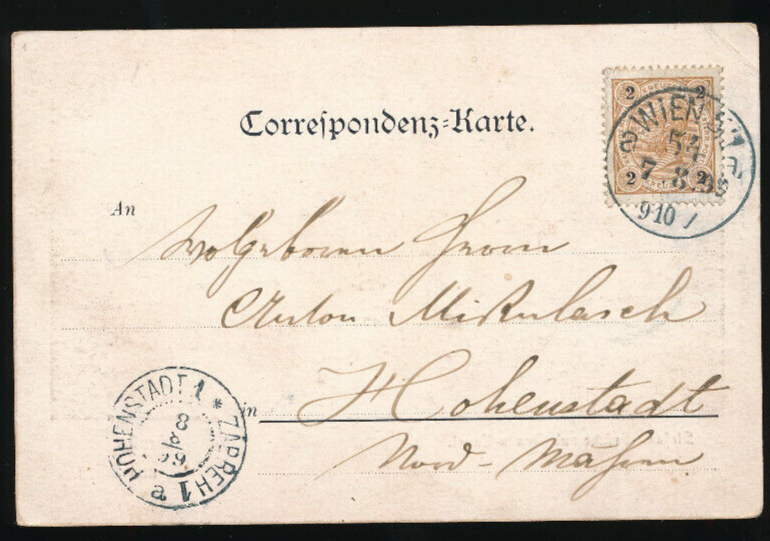 Correspondenz-Karte.
2 2
2 2
WIEN
54
7 8
9 10
An
Wolgeboren Herrn
Anton Mikulasch
in Hohenstadt
Nord-Mähren
HOHENSTADT 1 * ZÁBŘEH 1
a
8